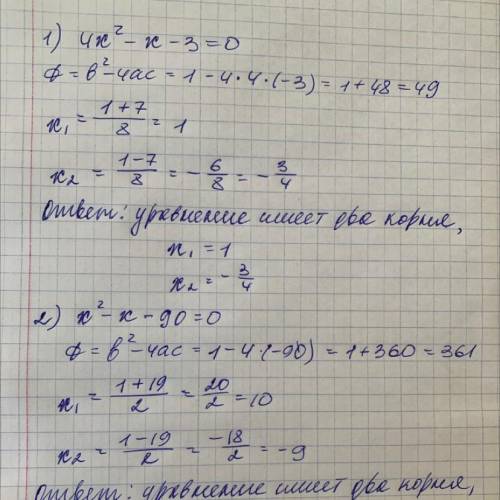 1) 4x² - x - 3 = 0
Д = в² - 4ас = 1 - 4 · 4 · (-3) = 1 + 48 = 49
x₁ = (1+7)/8 = 1
x₂ = (1-7)/8 = -6/8 = -3/4
Ответ: уравнение имеет два корня,
x₁ = 1
x₂ = -3/4
2) x² - x - 90 = 0
Д = в² - 4ас = 1 - 4 · (-90) = 1 + 360 = 361
x₁ = (1+19)/2 = 20/2 = 10
x₂ = (1-19)/2 = -18/2 = -9
Ответ: уравнение имеет два корня,